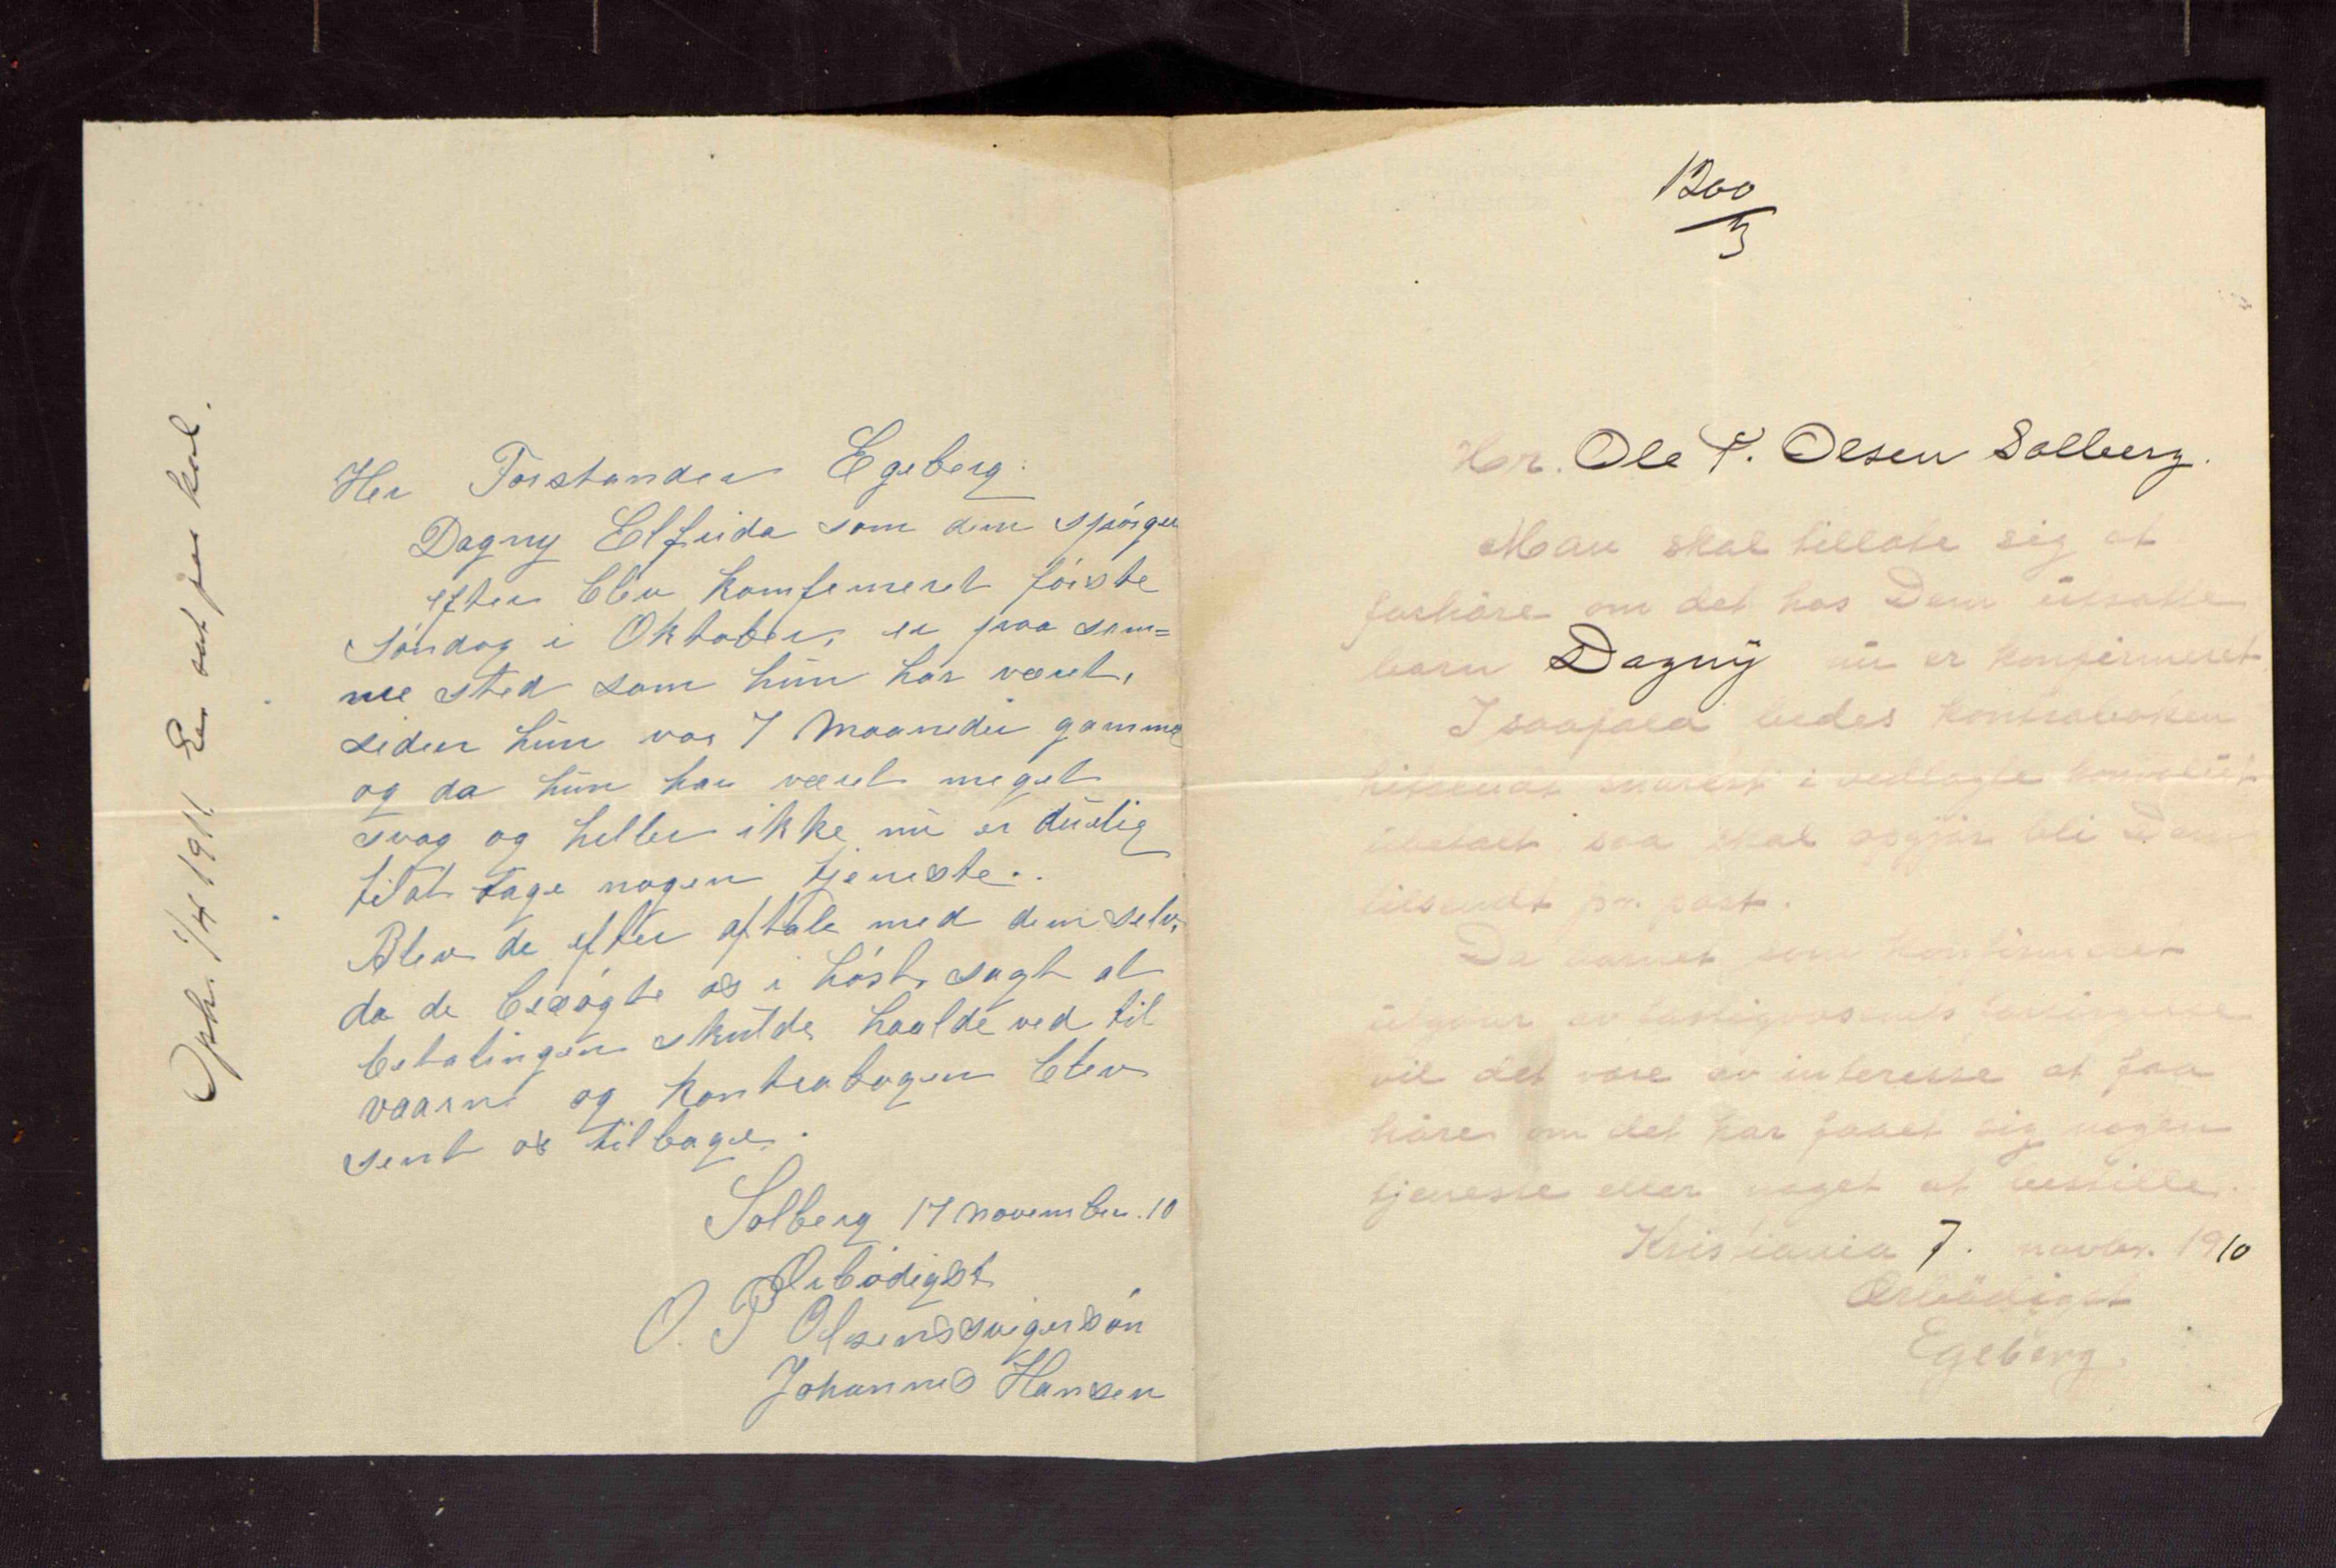 Oph. 1/4 1911. Er ant. paa kal.
Her Forstander Egeberg.
Dagny Elfrida som dem spörger
efter blev komfermeret förste
söndag i Oktober, er paa sam=
me sted som hun har været,
siden hun var 7 Maaneder gamme
og da hun har været meget
svag og heller ikke nu er duelig
til at tage nogen tjeneste..
Blev de efter aftale med dem selv,
da de besögte os i höst, sagt at
betalingen skulde haalde ved til
vaarn og kontrabogen blev
sent os tilbage.
Solberg 17 november. 10
Ærbödigst
O. P Olsens svigersön
Johannes Hansen
1200
/3
Hr. Ole P. Olsen Solberg.
Man skal tillate sig at
forhöre om det hos Dem utsatte
barn Dagny nu er konfirmeret
I saafald bedes kontraboken
hitsendt snarest i vedlagte konvolut
saa skal opgjör bli Dem
tilsendt pr. post.
Da barnet som konfirmeret
utgaar av fattigvæsenets forsörgelse
vil det være av interesse at faa
höre om det har faaet sig nogen
tjeneste eller noget at bestille.
Kristiania 7. novbr. 1910
Ærbödigst
Egeberg.